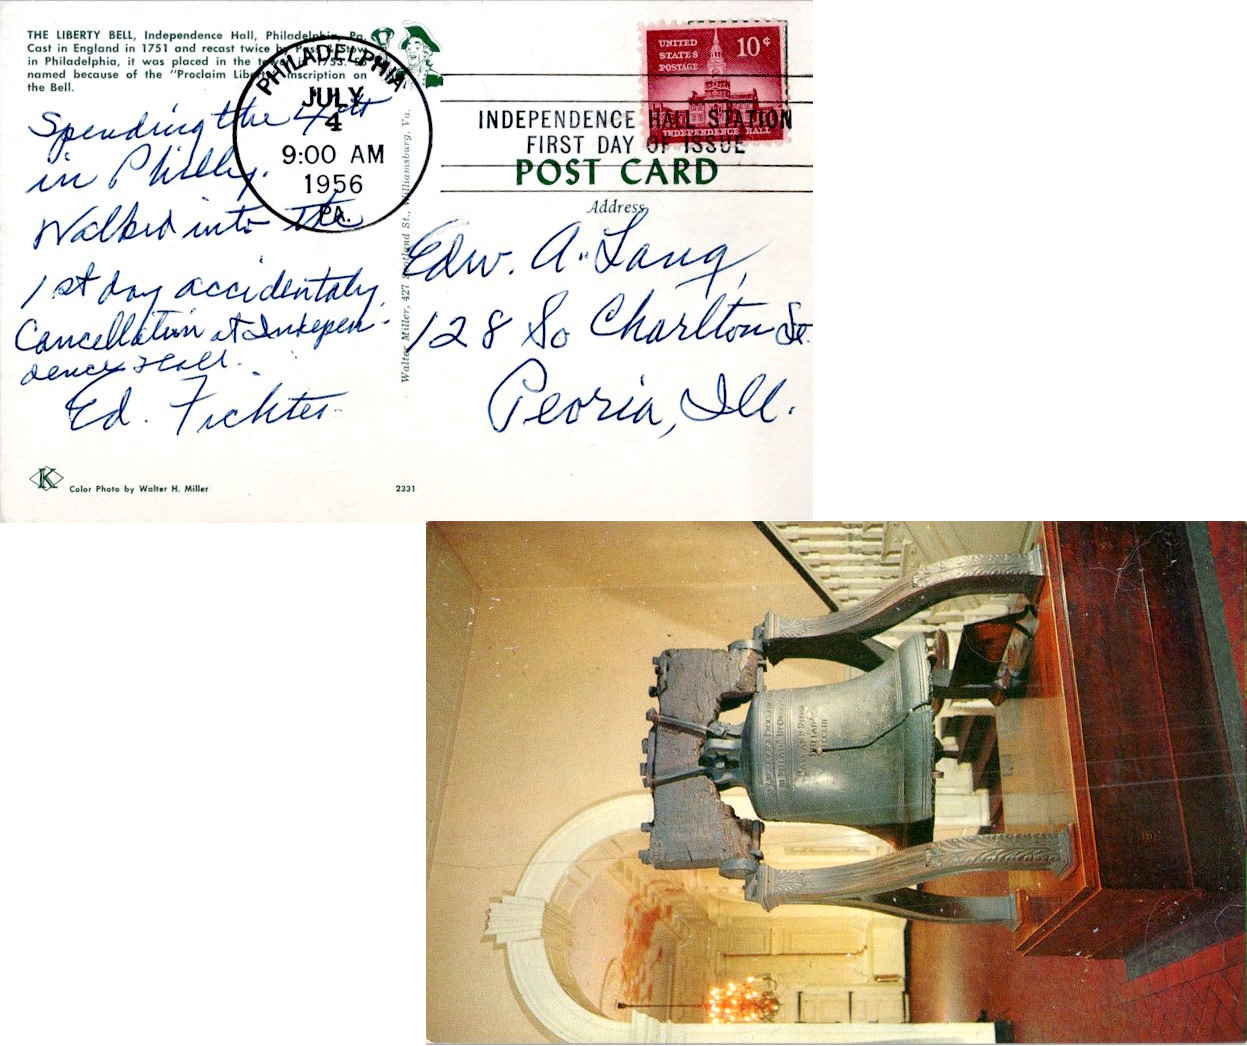 THE LIBERTY BELL, Independence Hall, Philadelphia, Pa.
Cast in England in 1751 and recast twice by Pass & Stow
in Philadelphia, it was placed in the tower in 1753. So
named because of the "Proclaim Liberty" inscription on
the Bell.
PHILADELPHIA
JULY
4
9:00 AM
1956
PA.
Spending the 4th
in Philly.
Walked into the
1st day accidentaly,
Cancellation at Indepen-
dence Hall.
Ed. Fichter
K
Color Photo by Walter H. Miller
2331
Walter Miller, 427 Scotland St., Williamsburg, Va.
UNITED
STATES
POSTAGE
10¢
INDEPENDENCE HALL
INDEPENDENCE HALL STATION
FIRST DAY OF ISSUE
POST CARD
Address
Edw. A. Lang,
128 So Charlton St.
Peoria, Ill.